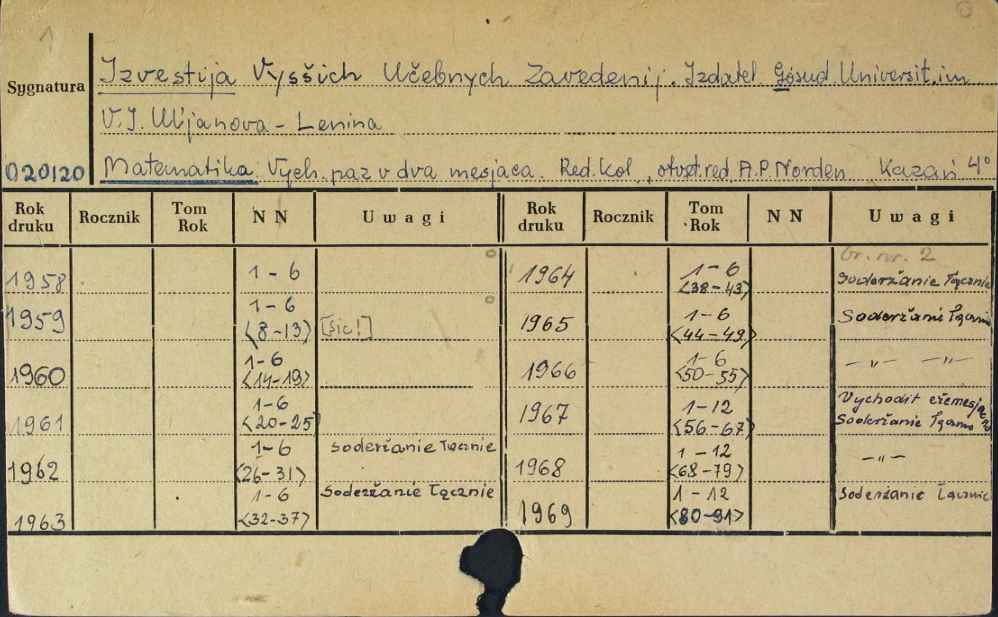 1
Izvestija Vysšich Učebnych Zavedenij. Izdatel Gosud. Universit. im
Sygnatura
V. I. Ul'janova - Lenina
020120 Matematika. Vych. raz v dva mesjaca. Red. kol., otvst. red. A.P. Norden Kazań 4°
Rok druku Rocznik Tom Rok NN Uwagi Rok druku Rocznik Tom Rok NN Uwagi
nr. 2
1958 1-6 1964 1-6 <38-43> Soderžanie łącznie
1959 1-6 <8-13> [sic!] 1965 1-6 <44-49> Soderžanie łącznie
1960 1-6 <14-19> 1966 1-6 <50-55> -"- -"-
1961 1-6 <20-25> 1967 1-12 <56-67> Vychodit Soderžanie łącznie
1962 1-6 <26-31> soderžanie łącznie 1968 1-12 <68-79> -"-
1963 1-6 <32-37> Soderžanie łącznie 1969 1-12 <80-91> Soderżanie łącznie